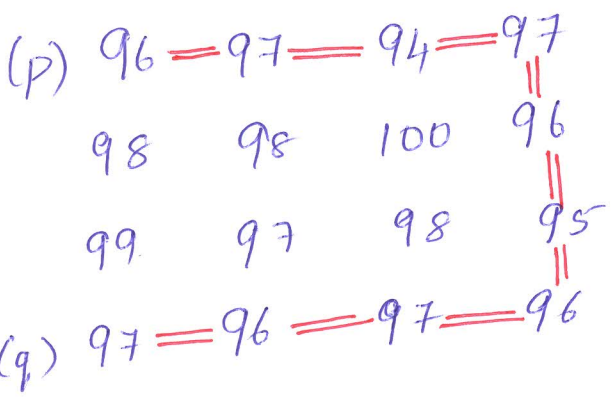 (p) 96 97 94 97
98 98 100 96
99 97 98 95
(q) 97 96 97 96